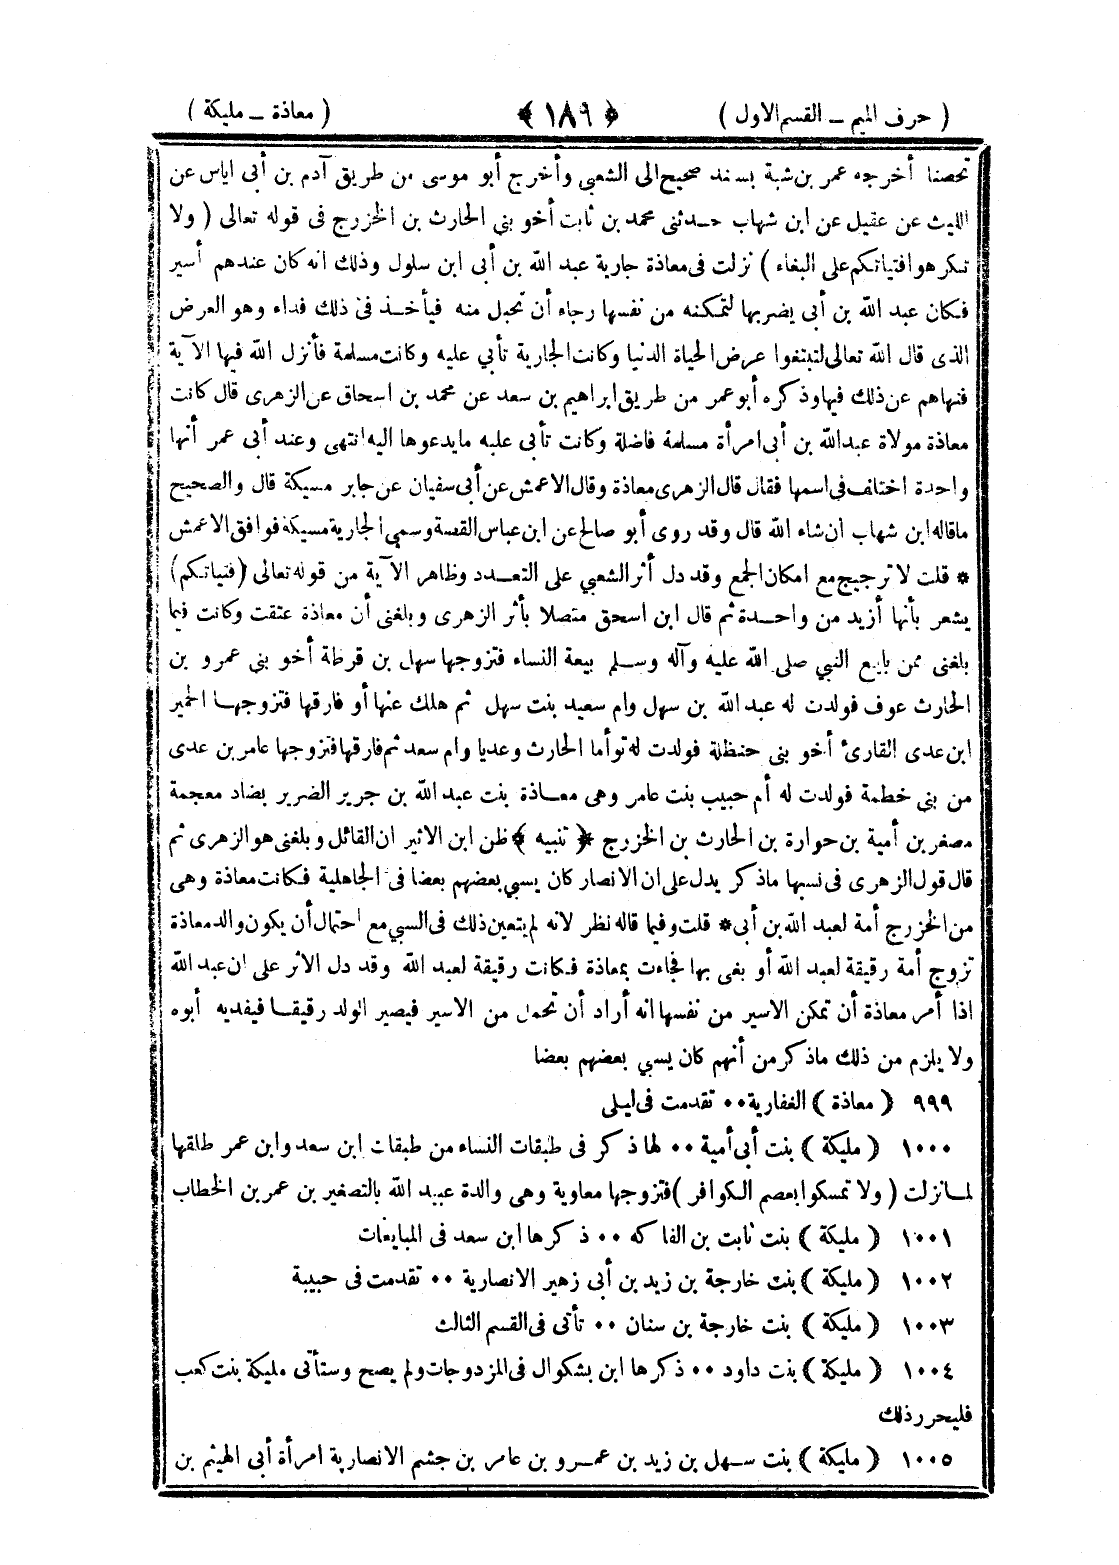 ( حرف الميم ــ القسم الاول ) ﴿ ١٨٩ ﴾ ( معاذة ــ مليكة )
تحصنا أخرجه عمر بن شبة بسند صحيح الى الشعبي وأخرج أبو موسى من طريق آدم بن أبى اياس عن
الليث عن عقيل عن ابن شهاب حدثنى محمد بن ثابت أخو بني الحارث بن الخزرج فى قوله تعالى ( ولا
تكرهوا فتياتكم على البغاء ) نزلت فى معاذة جارية عبد الله بن أبى ابن سلول وذلك انه كان عندهم أسير
فكان عبد الله بن أبى يضربها لتمكنه من نفسها رجاء أن تحبل منه فيأخذ فى ذلك فداء وهو العرض
الذى قال الله تعالى لتبتغوا عرض الحياة الدنيا وكانت الجارية تأبي عليه وكانت مسلمة فأنزل الله فيها الآية
فنهاهم عن ذلك فيها وذكره أبو عمر من طريق ابراهيم بن سعد عن محمد بن اسحاق عن الزهرى قال كانت
معاذة مولاة عبد الله بن أبى امرأة مسلمة فاضلة وكانت تأبى عليه ما يدعوها اليه انتهى وعند أبى عمر أنها
واحدة اختلف فى اسمها فقال قال الزهرى معاذة وقال الاعمش عن أبى سفيان عن جابر مسيكة قال والصحيح
ما قاله ابن شهاب ان شاء الله قال وقد روى أبو صالح عن ابن عباس القصة وسمي الجارية مسيكة فوافق الاعمش
* قلت لا ترجيح مع امكان الجمع وقد دل أثر الشعبي على التعدد وظاهر الآية من قوله تعالى ( فتياتكم )
يشعر بأنها أزيد من واحدة ثم قال ابن اسحق متصلا بأثر الزهرى وبلغنى أن معاذة عتقت وكانت فيما
بلغنى ممن بايع النبي صلى الله عليه وآله وسلم بيعة النساء فتزوجها سهل بن قرظة أخو بنى عمرو بن
الحارث عوف فولدت له عبد الله بن سهل وام سعيد بنت سهل ثم هلك عنها أو فارقها فتزوجها الحمير
ابن عدى القارئ أخو بنى حنظلة فولدت له توأما الحارث وعديا وام سعد ثم فارقها فتزوجها عامر بن عدى
من بني خطمة فولدت له أم حبيب بنت عامر وهى معاذة بنت عبد الله بن جرير الضرير بضاد معجمة
مصغر بن أمية بن حوارة بن الحارث بن الخزرج ﴿ تنبيه ﴾ ظن ابن الاثير ان القائل وبلغنى هو الزهرى ثم
قال قول الزهرى فى نسبها ما ذكر يدل على ان الانصار كان يسبي بعضهم بعضا فى الجاهلية فكانت معاذة وهى
من الخزرج أمة لعبد الله بن أبى * قلت وفيما قاله نظر لانه لم يتعين ذلك فى السبي مع احتمال أن يكون والد معاذة
تزوج أمة رقيقة لعبد الله أو بغى بها فجاءت بمعاذة فكانت رقيقة لعبد الله وقد دل الاثر على ان عبد الله
اذا أمر معاذة أن تمكن الاسير من نفسها انه أراد أن تحمل من الاسير فيصير الولد رقيقا فيفديه أبوه
ولا يلزم من ذلك ما ذكر من أنهم كان يسبي بعضهم بعضا
٩٩٩ ( معاذة ) الغفارية ٠٠ تقدمت فى ليلى
١٠٠٠ ( مليكة ) بنت أبى أمية ٠٠ لها ذكر فى طبقات النساء من طبقات ابن سعد وابن عمر طلقها
لما نزلت ( ولا تمسكوا بعصم الكوافر ) فتزوجها معاوية وهى والدة عبيد الله بالتصغير بن عمر بن الخطاب
١٠٠١ ( مليكة ) بنت ثابت بن الفاكه ٠٠ ذكرها ابن سعد فى المبايعات
١٠٠٢ ( مليكة ) بنت خارجة بن زيد بن أبى زهير الانصارية ٠٠ تقدمت فى حبيبة
١٠٠٣ ( مليكة ) بنت خارجة بن سنان ٠٠ تأتى فى القسم الثالث
١٠٠٤ ( مليكة ) بنت داود ٠٠ ذكرها ابن بشكوال فى المزدوجات ولم يصح وستأتى مليكة بنت كعب
فليحرر ذلك
١٠٠٥ ( مليكة ) بنت سهل بن زيد بن عمرو بن عامر بن جشم الانصارية امرأة أبى الهيثم بن